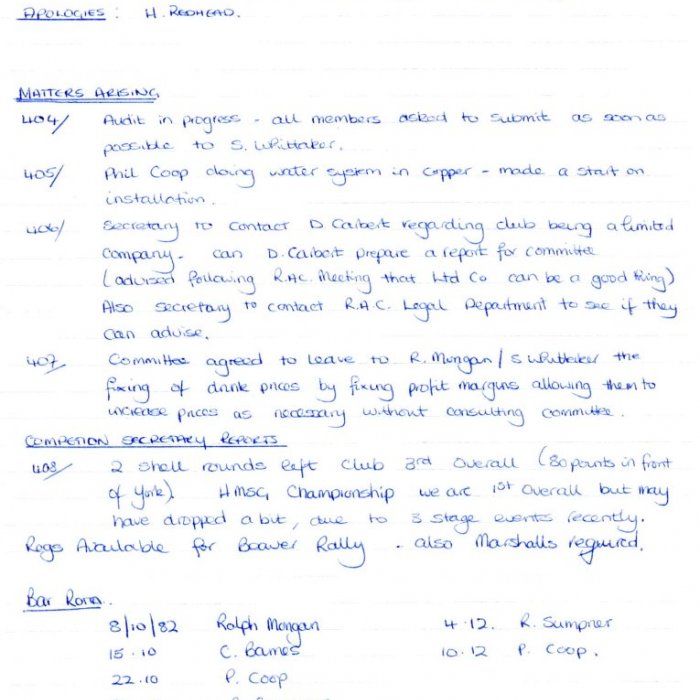 APOLOGIES : H. REDHEAD.
MATTERS ARISING
404/ Audit in progress - all members asked to submit as soon as
possible to S. Whittaker.
405/ Phil Coop doing water system in copper - made a start on
installation.
406/ Secretary to contact D Carbert regarding club being a limited
company. Can D. Carbert prepare a report for committee
(advised following R.A.C. Meeting that Ltd Co can be a good thing)
Also secretary to contact R.A.C. Legal Department to see if they
can advise.
407 Committee agreed to leave to R. Mongan / S Whittaker the
fixing of drink prices by fixing profit margins allowing them to
increase prices as necessary without consulting committee.
COMPETION SECRETARY REPORTS
408/ 2 Shell rounds left Club 3rd Overall (80 points in front
of York). HMSG Championship we are 1st Overall but may
have dropped a bit, due to 3 stage events recently.
Regs Available for Beaver Rally - also Marshalls required.
Bar Rota.
8/10/82 Ralph Mongan 4.12. R. Sumpner
15.10 C. Barnes 10.12 P. Coop.
22.10 P. Coop